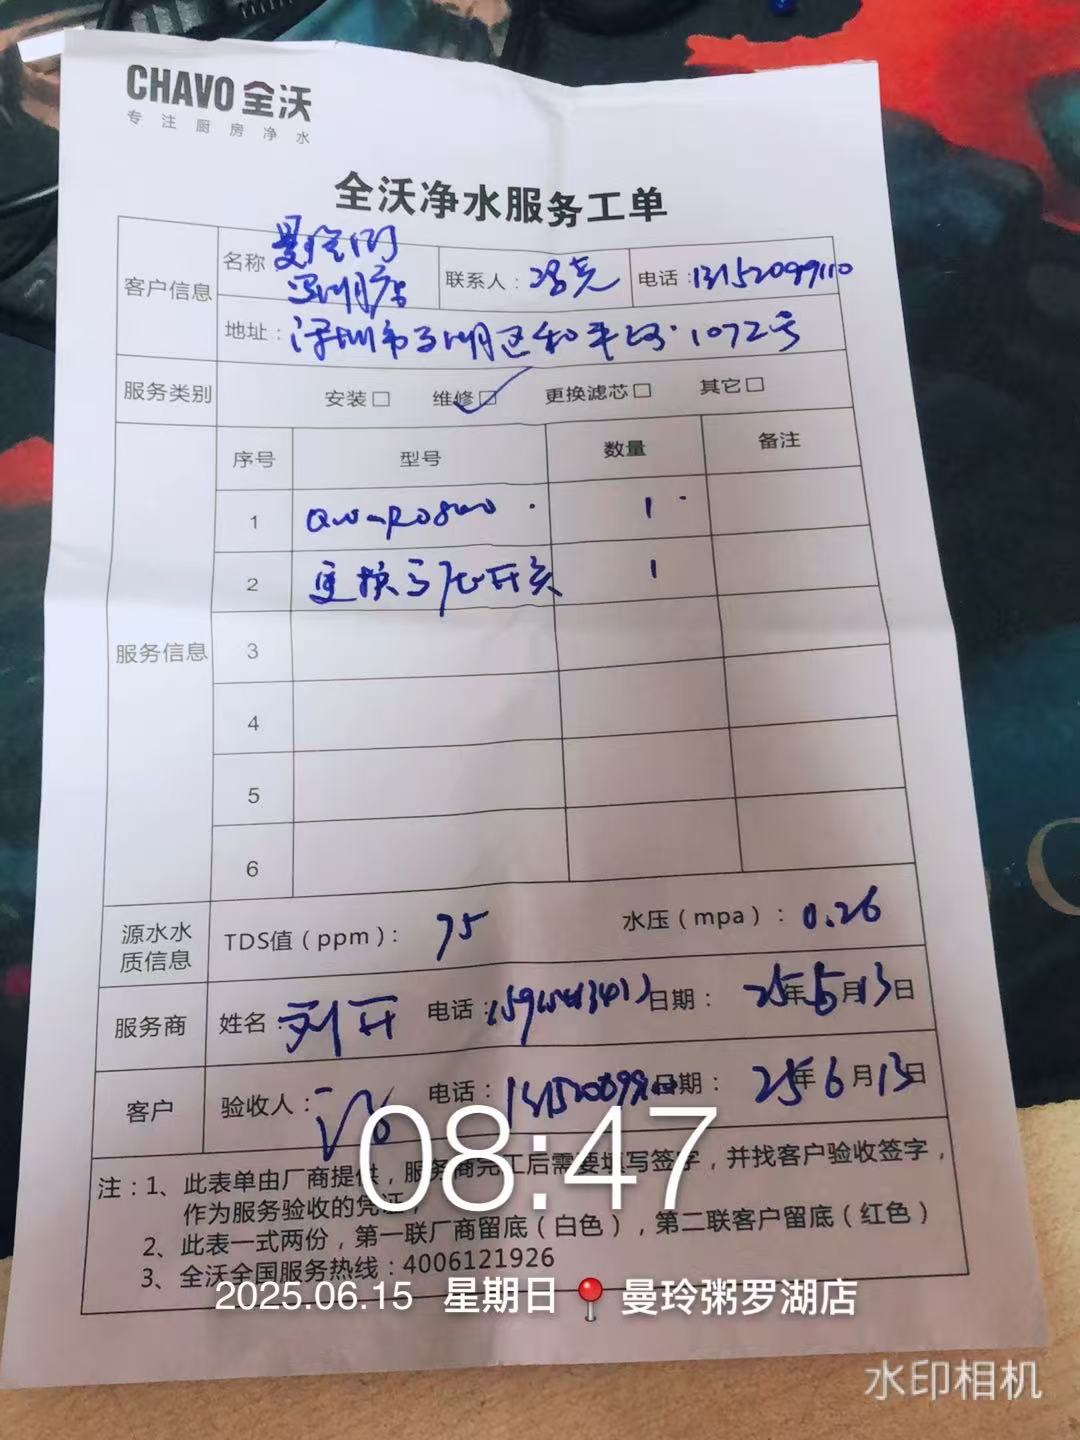 CHAVO 全沃
专注厨房净水
全沃净水服务工单
客户信息 名称 曼玲粥 联系人： 电话：13152099110
罗湖店
地址：深圳市罗湖区和平路1072号
服务类别 安装□ 维修☑ 更换滤芯□ 其它□
服务信息 序号 型号 数量 备注
1 1
2 更换高压开关 1
3
4
5
6
源水水质信息 TDS值（ppm）： 75 水压（mpa）：0.26
服务商 姓名：刘开 电话： 日期： 25年6月13日
客户 验收人： 电话： 日期： 25年6月13日
注：1、此表单由厂商提供，服务商完工后需要填写签字，并找客户验收签字，
作为服务验收的凭证；
2、此表一式两份，第一联厂商留底（白色），第二联客户留底（红色）
3、全沃全国服务热线：4006121926
08:47
2025.06.15 星期日 曼玲粥罗湖店
水印相机